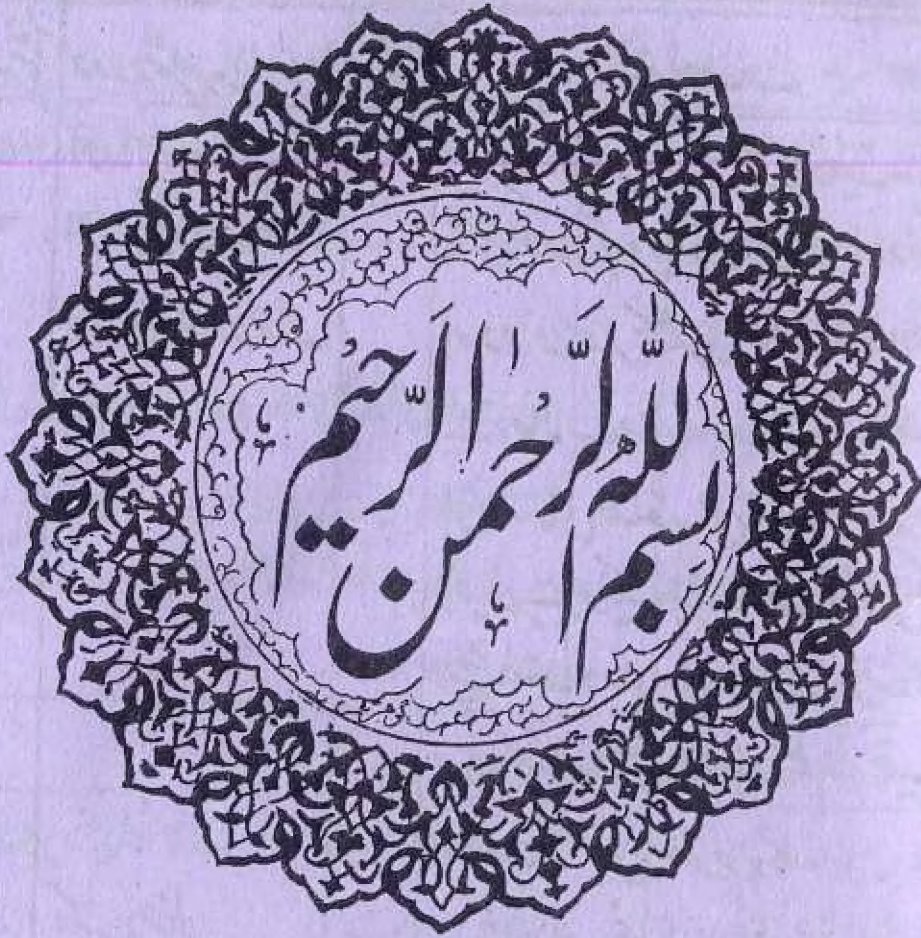 بسم اللّٰه الرَّحمٰن الرَّحیم